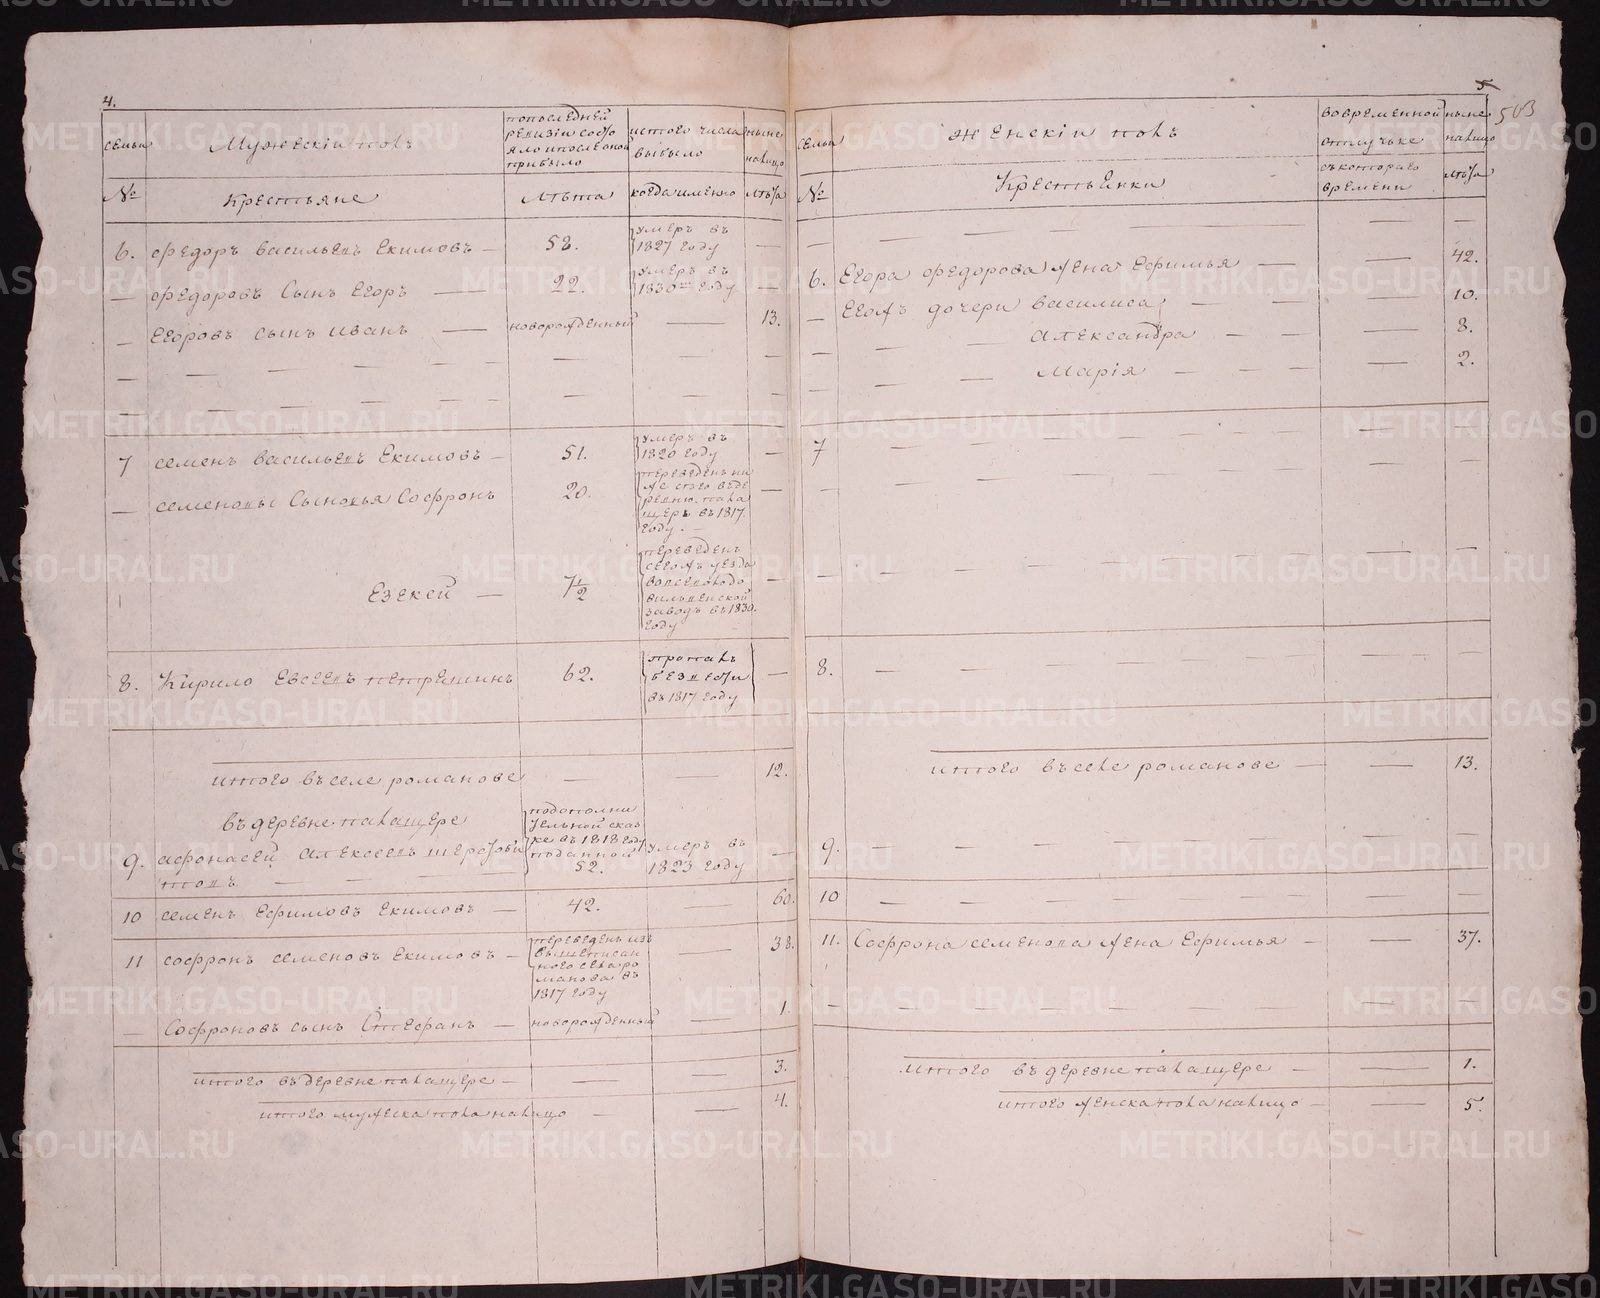 4.
семьи
Мужескій полъ
попоследней
ревизіи состо
яло ипослеоной
прибыло
истого числа
выбыло
ныне
налицо
№
Крестьяне
Лѣта
когда именно
лѣта
6. Федоръ Васильевъ Екимовъ — 52. умеръ въ
1827 году —
— Федоровъ Сынъ Егоръ — 22. умеръ въ
1830м году —
— Егоровъ сынъ Иванъ — новорожденный — 13.
7 Семенъ Васильевъ Екимовъ — 51. умеръ въ
1820 году —
— Семеновы Сыновья Софронъ 20. переведенъ ни
же сего въде
ревню пала
щеръ въ 1817.
году. —
Езекей — 7½ переведенъ
сегожъ уезда
вильвенской
заводъ въ 1830.
году
8. Кирило Евсеевъ Петрешинъ 62. пропалъ
безвести
въ 1817 году —
итого въ селе романове — — 12.
въ деревне палащере
9. Афонасей Алексеевъ подополни
тельной сказ
ке въ 1818 году
поданной
52. умеръ въ
1823 году —
10 Семенъ Ефимовъ Екимовъ — 42. — 60.
11 Софронъ Семеновъ Екимовъ — переведенъ изъ
вышеписан
ного села ро
манова въ
1817 году — 38.
— Софроновъ сынъ Стефанъ — новорожденный — 1.
итого въ деревне палащере — — — 3.
итого мужеска пола налицо — — 4.
5
503
семьи
Женскій полъ
вовременной
отлучке
ныне
налицо
№
Крестьянки
съ котораго
времени
лѣта
6. Егора Федорова Жена Ефимья — — 42.
— Егожъ дочери Василиса — — 10.
Александра — — 8.
Марія — — 2.
7
8.
итого въ селе романове — — 13.
9.
10
11. Софрона Семенова Жена Ефимья — — 37.
итого въ деревне палащере — — 1.
итого женска пола налицо — — 5.
METRIKI.GASO-URAL.RU